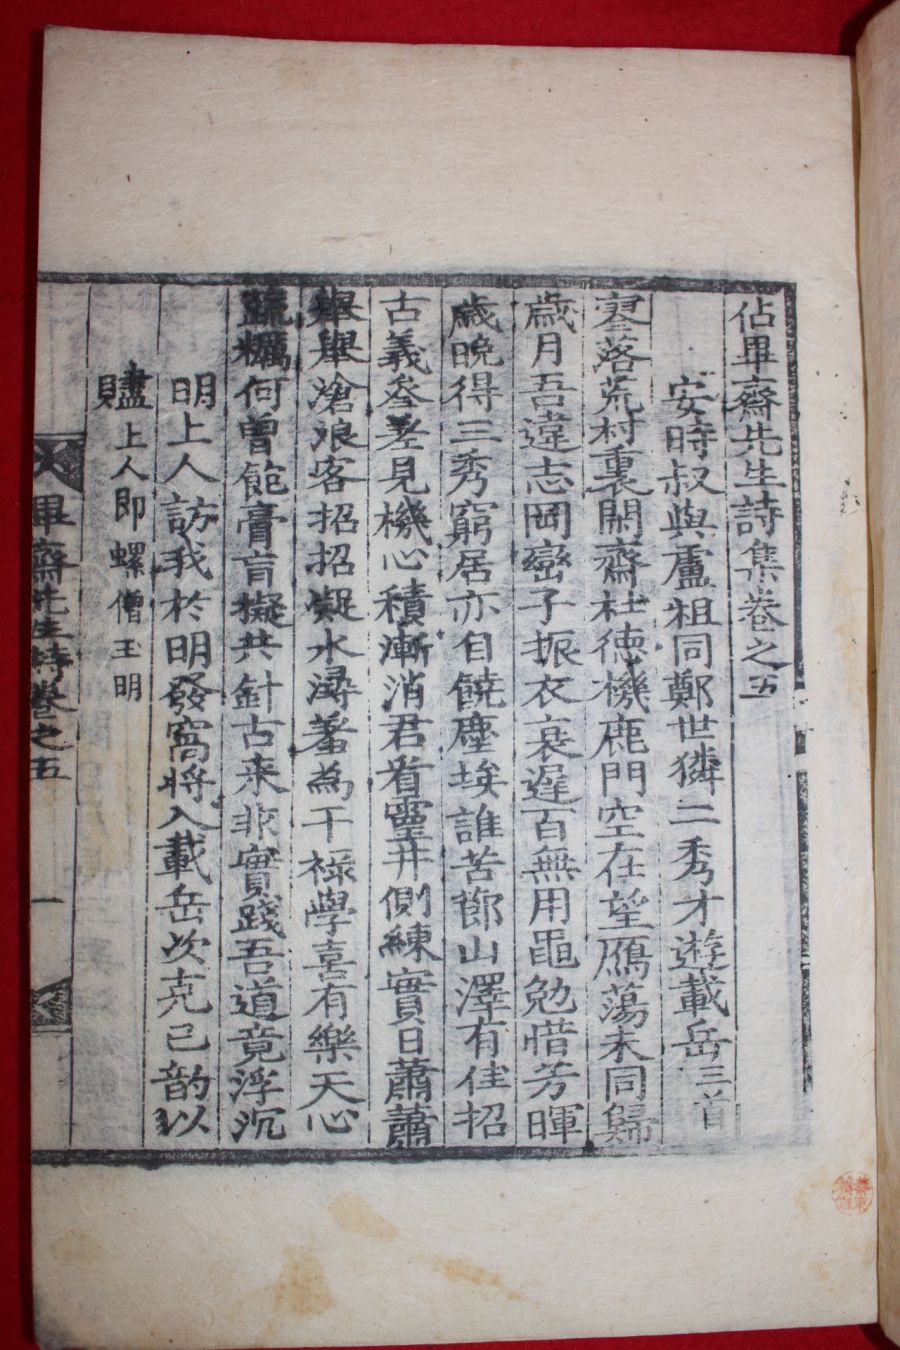 佔畢齋先生詩集卷之五
安時叔與盧粗同鄭世獜二秀才遊載岳三首
寥落荒村裏閑齋杜德機鹿門空在望鴈蕩未同歸
歲月吾違志岡巒子振衣衰遲百無用黽勉惜芳暉
歲晩得三秀窮居亦自饒塵埃誰苦節山澤有佳招
古義叅差見機心積漸消君看靈井側練實日蕭蕭
擧擧滄浪客招招凝水潯羞為干祿學喜有樂天心
䟽糲何曾飽膏肓擬共針古来非實踐吾道竟浮沉
明上人訪我於明發窩將入載岳次克己韵以
贐上人即螺僧玉明
畢齋先生詩卷之五
一